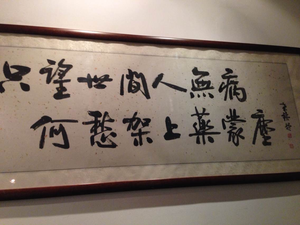 只望世間人無病
何愁架上藥蒙塵